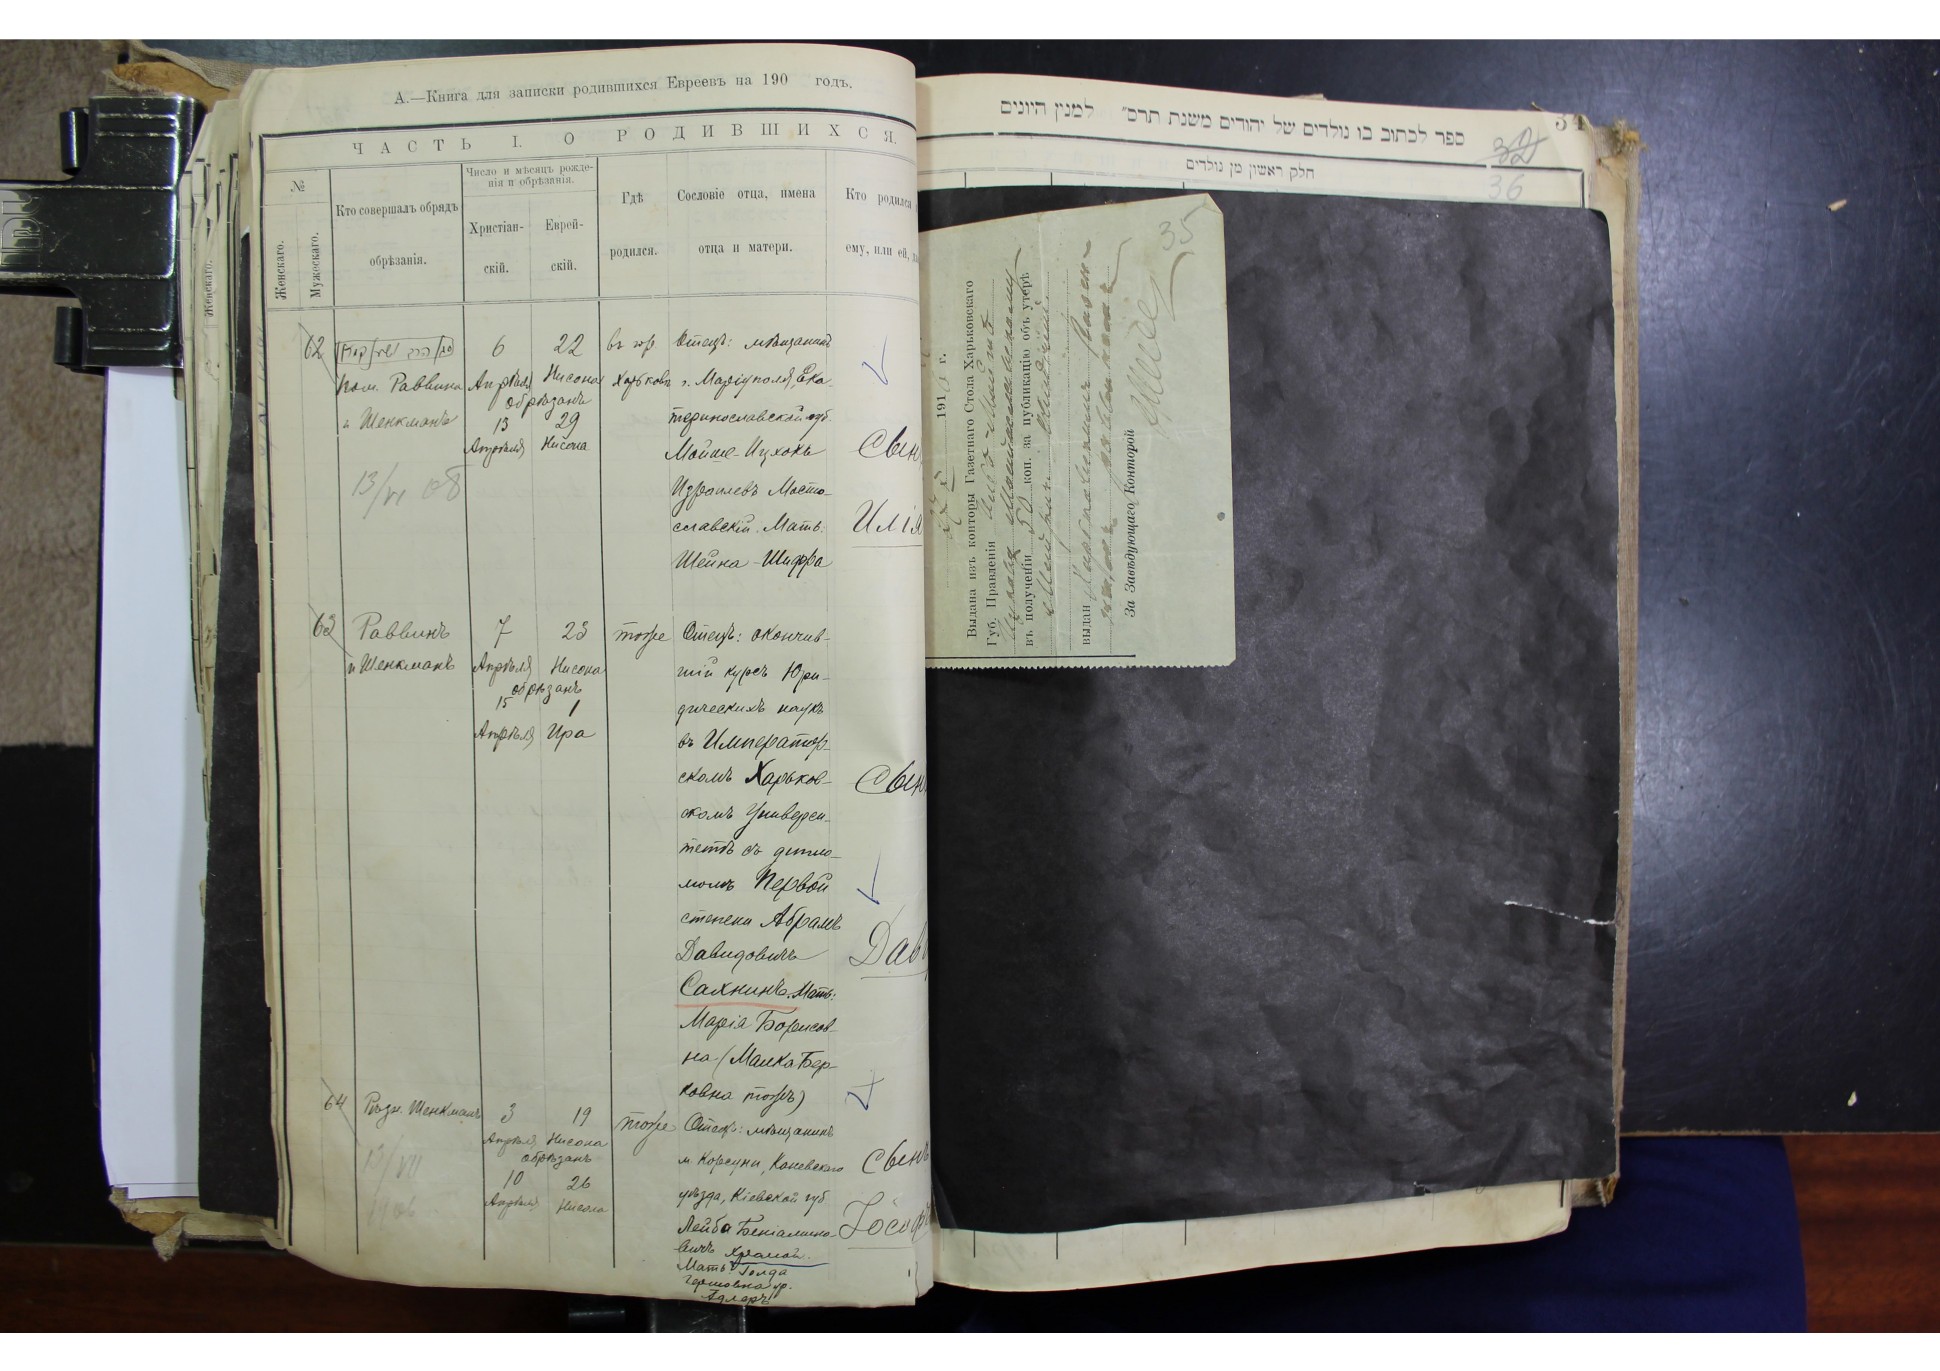 А.—Книга для записки родившихся Евреевъ на 190 годъ.
ЧАСТЬ I. О РОДИВШИХСЯ.
№
Женскаго.
Мужескаго.
Кто совершалъ обрядъ
обрѣзанія.
Число и мѣсяцъ рожде-
нія и обрѣзанія.
Христіан-
скій.
Еврей-
скій.
Гдѣ
родился.
Сословіе отца, имена
отца и матери.
Кто родился
ему, или ей,
62
пом. Раввина
и Шенкманъ
13/VI 08
6
Апрѣля
22
Нисона
обрѣзанъ
13
Апрѣля
29
Нисона
въ гор
Харьковѣ
Отецъ: мѣщанинъ
г. Маріуполя, Ека-
теринославской губ.
Мойше-Ицхокъ
Израилевъ Мосто-
славскій. Мать:
Шейна-Шифра
Сынъ
Илія
63
Раввинъ
и Шенкманъ
7
Апрѣля
23
Нисона
обрѣзанъ
15
Апрѣля
1
Ира
тоже
Отецъ: окончив-
шій курсъ Юри-
дическихъ наукъ
въ Император-
скомъ Харьков-
скомъ Универси-
тетѣ съ дипло-
момъ Первой
степени Абрамъ
Давидовичъ
Сахнинъ. Мать:
Марія Борисов-
на (Малка Бер-
ковна тожъ)
Сынъ
Дав
64
Шенкманъ
13/VII
3
Апрѣля
19
Нисона
обрѣзанъ
10
Апрѣля
26
Нисона
тоже
Отецъ: мѣщанинъ
м. Корсуни, Каневскаго
уѣзда, Кіевской губ
Лейба Беніамино-
вичъ Хромой.
Мать Голда
Гершовна ур.
Адлеръ
Сынъ
Іосифъ
ספר לכתוב בו נולדים של יהודים משנת תרס״ למנין היונים
חלק ראשון מן נולדים
34
32
36
35
191 г.
Выдана изъ конторы Газетнаго Стола Харьковскаго
Губ. Правленія
въ полученіи 50 коп. за публикацію объ утерѣ
выдан
За Завѣдующаго Конторой
Женскаго.